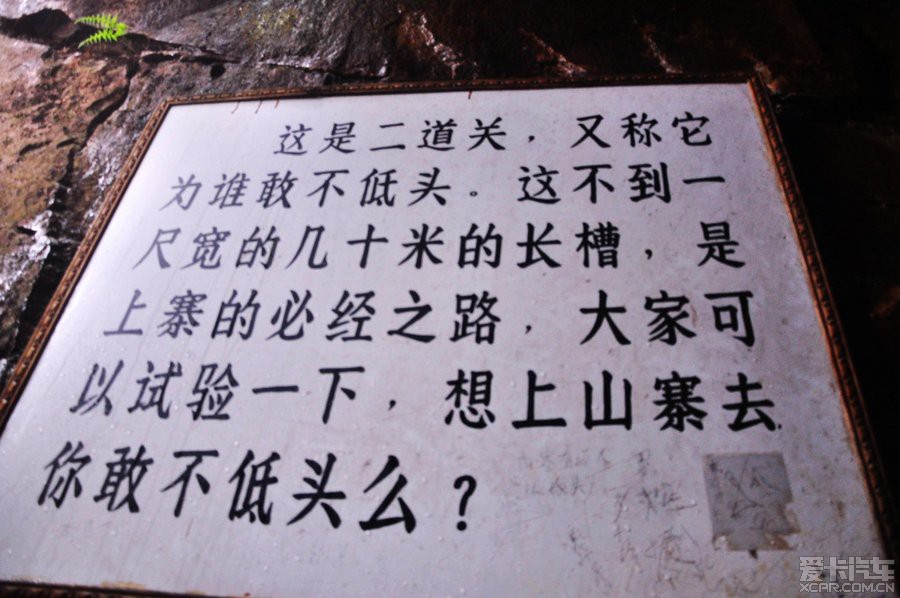 这是二道关，又称它
为谁敢不低头。这不到一
尺宽的几十米的长槽，是
上寨的必经之路，大家可
以试验一下，想上山寨去
你敢不低头么？
爱卡汽车
XCAR.COM.CN